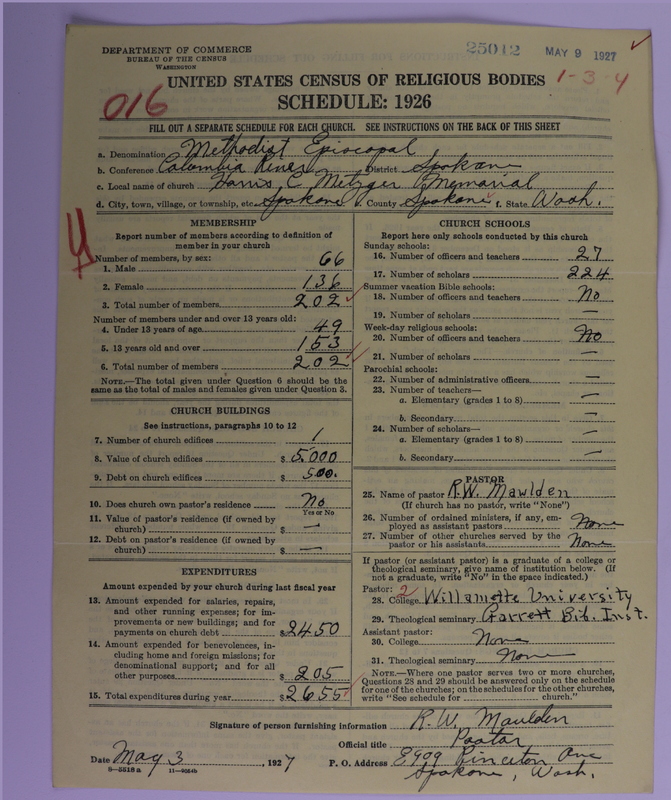 DEPARTMENT OF COMMERCE
BUREAU OF THE CENSUS
WASHINGTON
25012 MAY 9 1927
UNITED STATES CENSUS OF RELIGIOUS BODIES
1-3-4
016
SCHEDULE: 1926
FILL OUT A SEPARATE SCHEDULE FOR EACH CHURCH. SEE INSTRUCTIONS ON THE BACK OF THIS SHEET
a. Denomination Methodist Episcopal
b. Conference Columbia River District Spokane
c. Local name of church C. Metzger Memorial
d. City, town, village, or township, etc. Spokane County Spokane f. State Wash.
MEMBERSHIP
Report number of members according to definition of
member in your church
Number of members, by sex:
1. Male 66
2. Female 136
3. Total number of members 202
Number of members under and over 13 years old:
4. Under 13 years of age 49
5. 13 years old and over 153
6. Total number of members 202
NOTE.—The total given under Question 6 should be the
same as the total of males and females given under Question 3.
CHURCH BUILDINGS
See instructions, paragraphs 10 to 12
7. Number of church edifices 1
8. Value of church edifices $ 5,000
9. Debt on church edifices $ 500.
10. Does church own pastor's residence No
Yes or No
11. Value of pastor's residence (if owned by
church) $ —
12. Debt on pastor's residence (if owned by
church) $ —
EXPENDITURES
Amount expended by your church during last fiscal year
13. Amount expended for salaries, repairs,
and other running expenses; for im-
provements or new buildings; and for
payments on church debt $ 2450
14. Amount expended for benevolences, in-
cluding home and foreign missions; for
denominational support; and for all
other purposes $ 205
15. Total expenditures during year $ 2655
CHURCH SCHOOLS
Report here only schools conducted by this church
Sunday schools:
16. Number of officers and teachers 27
17. Number of scholars 224
Summer vacation Bible schools:
18. Number of officers and teachers No
19. Number of scholars —
Week-day religious schools:
20. Number of officers and teachers No
21. Number of scholars —
Parochial schools:
22. Number of administrative officers —
23. Number of teachers—
a. Elementary (grades 1 to 8) —
b. Secondary —
24. Number of scholars—
a. Elementary (grades 1 to 8) —
b. Secondary —
PASTOR
25. Name of pastor R.W. Mawlden
(If church has no pastor, write "None")
26. Number of ordained ministers, if any, em-
ployed as assistant pastors None
27. Number of other churches served by the
pastor or his assistants None
If pastor (or assistant pastor) is a graduate of a college or
theological seminary, give name of institution below. (If
not a graduate, write "No" in the space indicated.)
Pastor: 2
28. College Willamette University
29. Theological seminary Garrett Bib. Inst.
Assistant pastor:
30. College None
31. Theological seminary None
NOTE.—Where one pastor serves two or more churches,
Questions 28 and 29 should be answered only on the schedule
for one of the churches; on the schedules for the other churches,
write "See schedule for church."
Signature of person furnishing information R.W. Maulden
Official title Pastor
Date May 3, 1927 P. O. Address Princeton Ave
8—5518a 11—9064b Spokane, Wash.